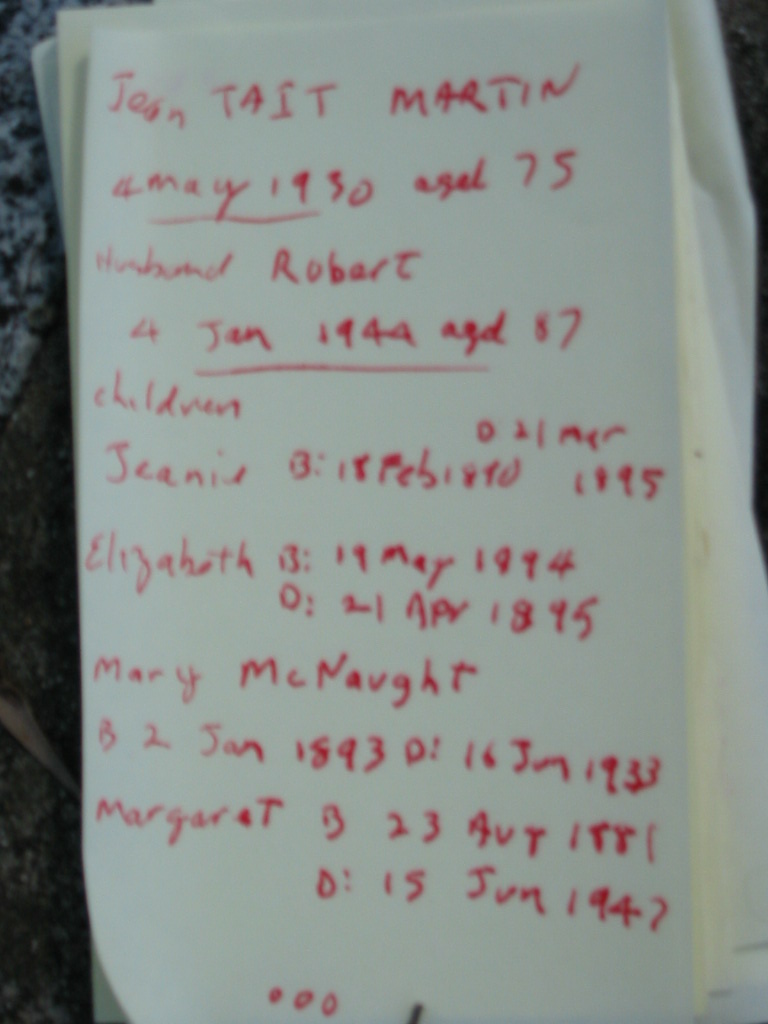 Jean TAIT MARTIN
4 may 1930 aged 75
Husband Robert
4 Jan 1944 aged 87
children
D 21 mar
Jeanie B: 18 Feb 1890 1895
Elizabeth B: 19 May 1894
D: 21 Apr 1895
Mary McNaught
B 2 Jan 1893 D: 16 Jun 1933
Margaret B 23 Aug 1881
D: 15 Jun 1947
...